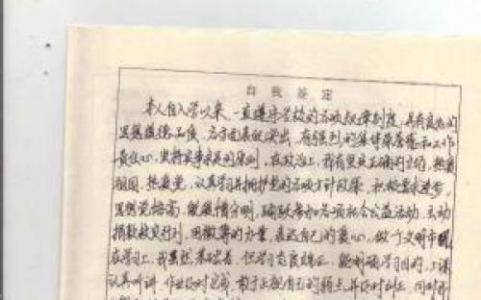 自我鉴定
本人自入学以来,一直遵守学校的各项规章制度,具有良好的
思想道德品质,各方面表现突出,有强烈的集体荣誉感和工作
责任心,坚持实事求是的原则。在政治上,我有坚定正确的立场,热爱
祖国,热爱党,认真学习并拥护党的各项方针政策,积极要求进步,
思想觉悟高,爱憎分明,踊跃参加各项社会公益活动,主动
捐款救灾行列,用微薄的力量,表达自己的爱心,做个文明市民
在学习上,我虽然基础差,但学习态度端正,能明确学习目的,上课
认真听讲,作业及时完成,敢于正视自己的弱点并及时纠正,同时